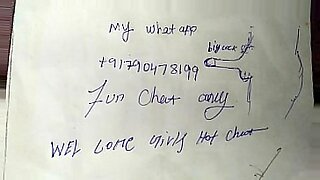 My whatapp
big cock
+91790478199
Fun Chat only
WEL come girls Hot chat